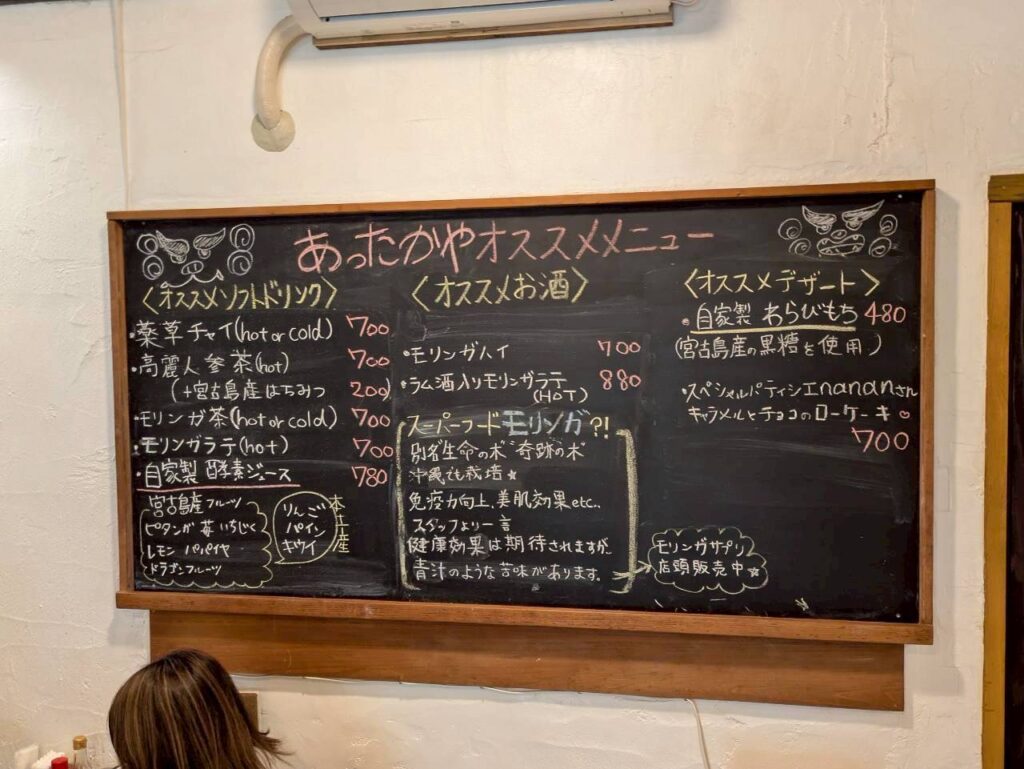 あったかやオススメメニュー
〈オススメソフトドリンク〉
・薬草チャイ(hot or cold) 700
・高麗人参茶(hot) 700
(+宮古島産はちみつ 200)
・モリンガ茶(hot or cold) 700
・モリンガラテ(hot) 700
・自家製 酵素ジュース 780
宮古島産フルーツ
ピタンガ 苺 いちじく
レモン パパイヤ
ドラゴンフルーツ
本土産
りんご
パイン
キウイ
〈オススメお酒〉
・モリンガハイ 700
・ラム酒入りモリンガラテ 880
(HOT)
スーパーフードモリンガ?!
別名"生命の木""奇跡の木"
沖縄でも栽培☆
免疫力向上、美肌効果etc..
スタッフより一言
健康効果は期待されますが
青汁のような苦味があります。
〈オススメデザート〉
・自家製 わらびもち 480
(宮古島産の黒糖を使用)
・スペシャルパティシエnananさん
キャラメルとチョコのローケーキ♡
700
モリンガサプリ
店頭販売中☆